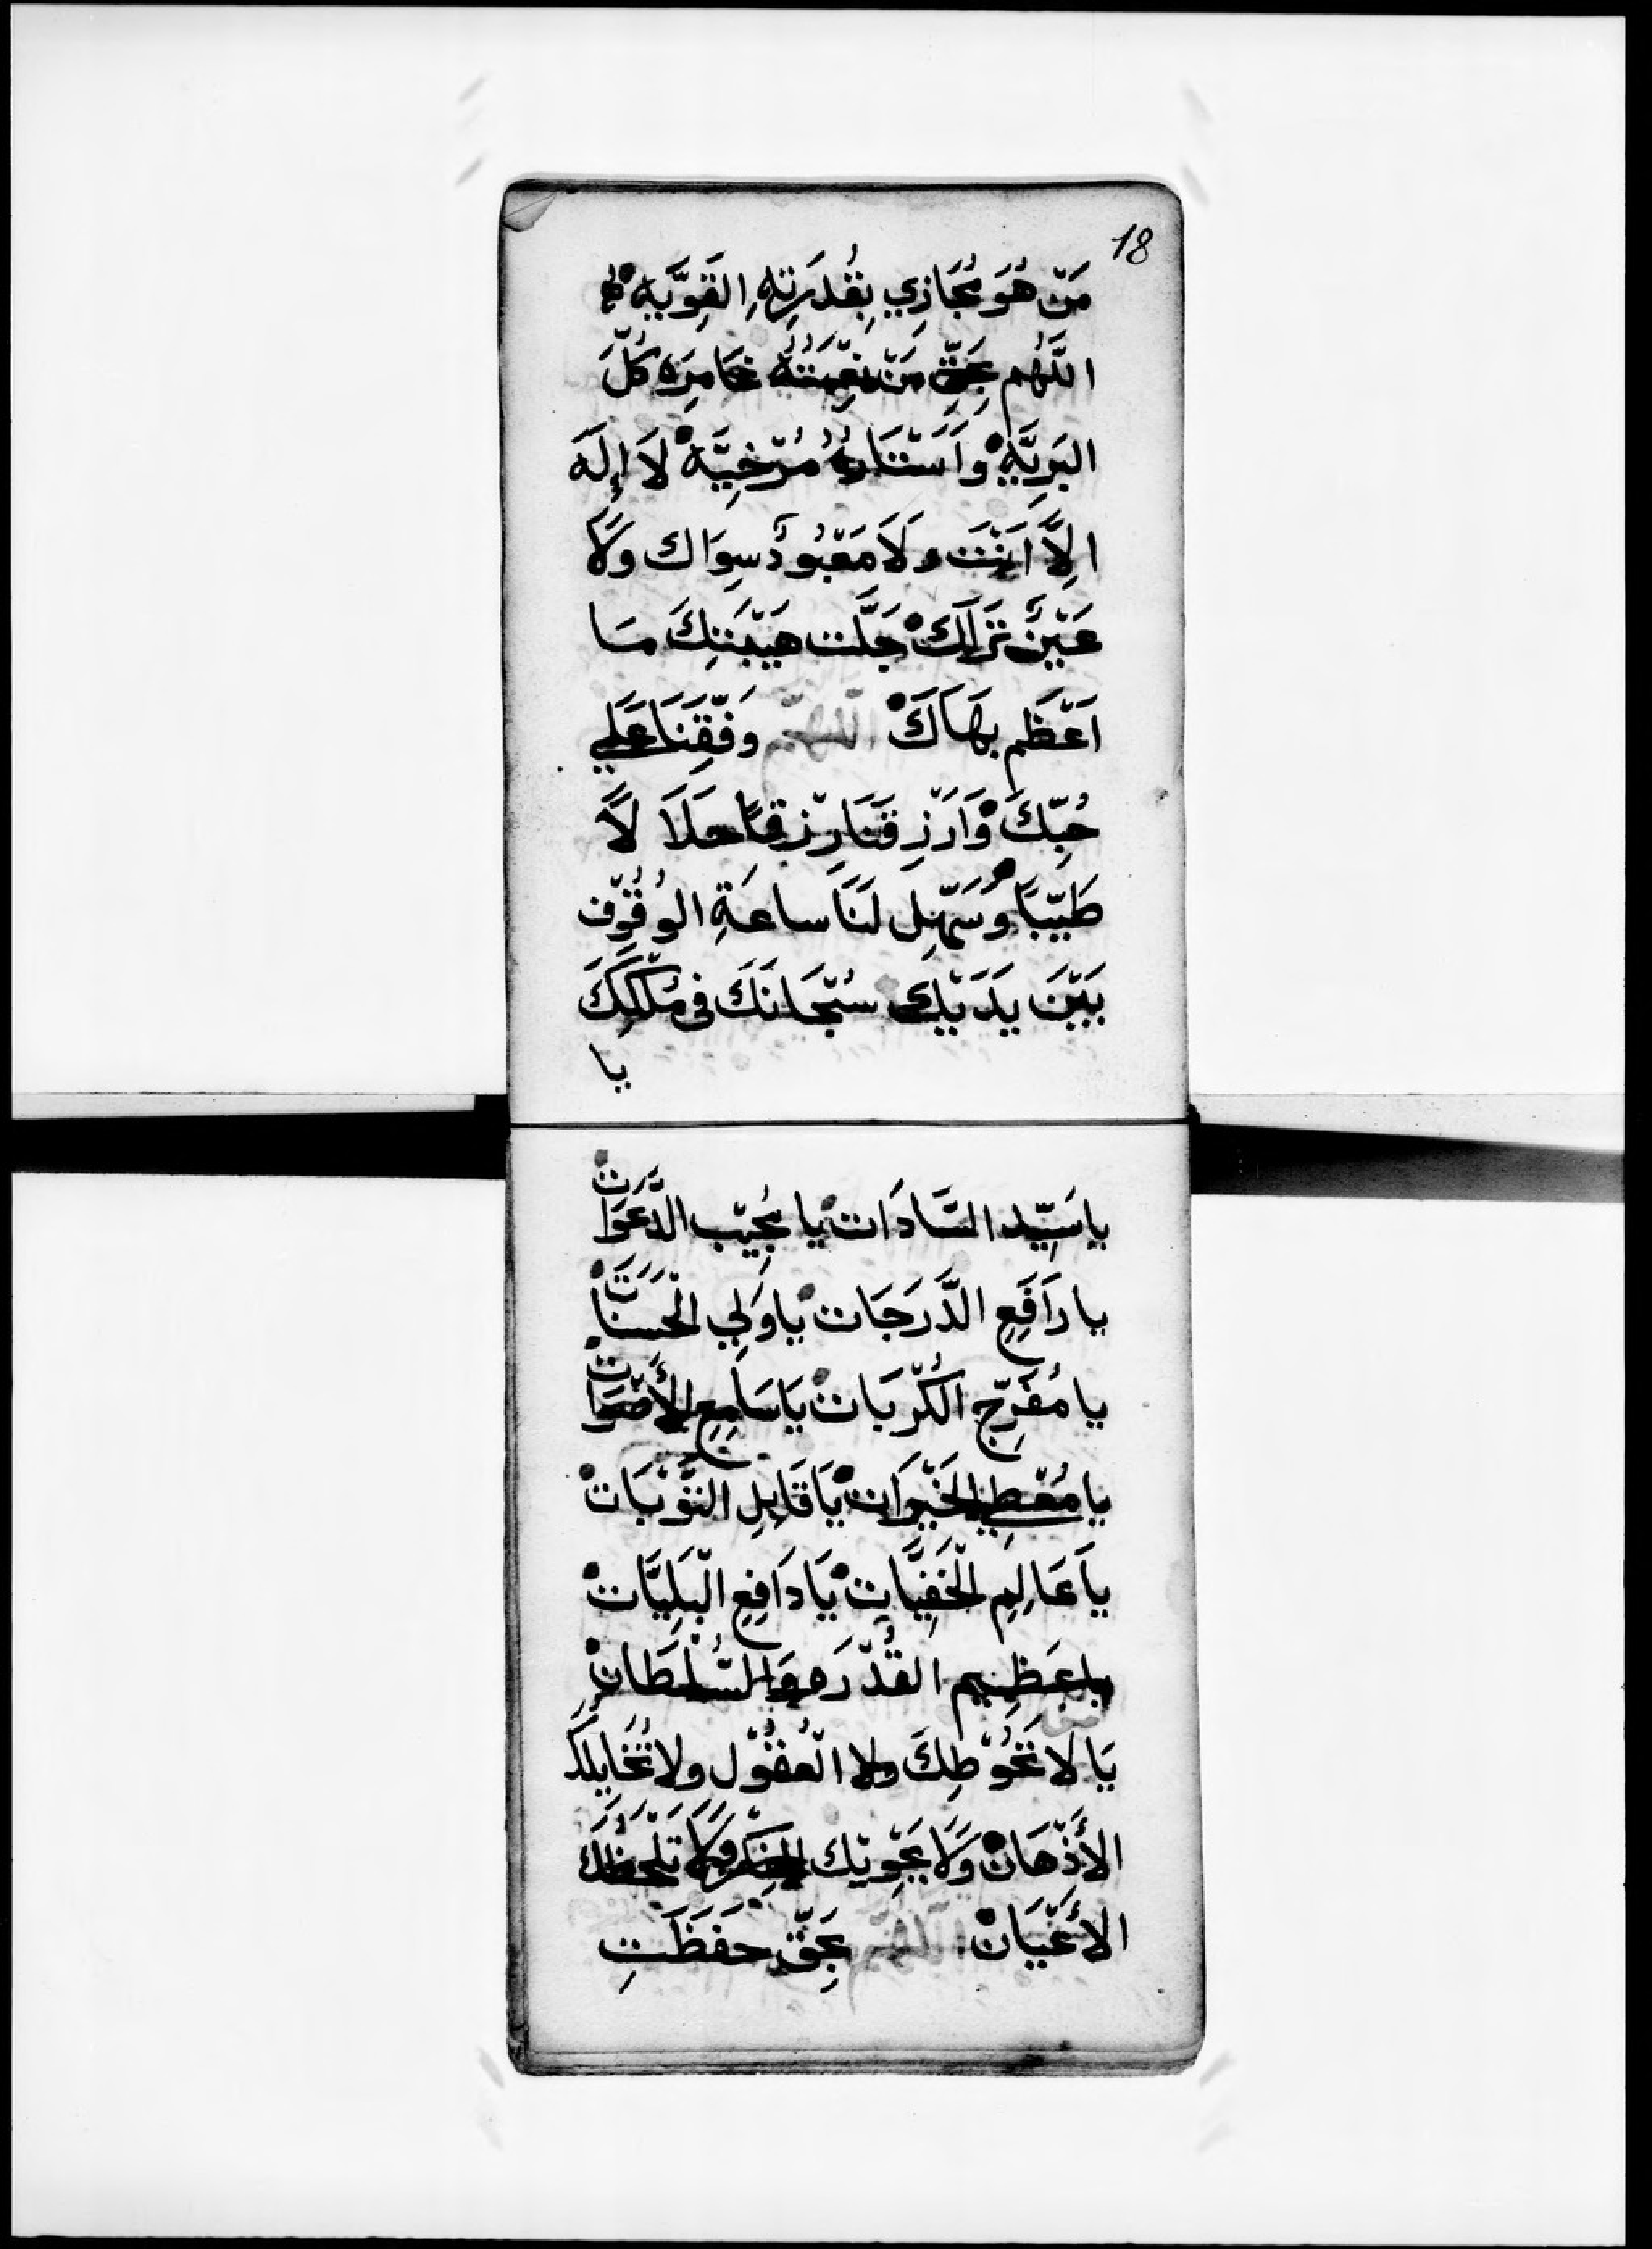 18
مَنْ هُوَ مُجَازِي بِقُدْرَتِهِ القَوِيَّهْ
اللَّهُم بِحَقِّ مَنْ نِعْمَتُهُ غَامِرَه كُلَّ
البَرِيَّهْ وَاَسْتَارُهُ مُرْخِيَّهْ لاَ إِلَهَ
اِلَّا اَنْتَ وَلَا مَعْبُودَ سِوَاك وَلَا
عَيْنَ تَرَاكَ جَلَّت هَيْبَتِكَ مَا
اَعْظَم بهَاكَ اللهم وَفِّقِنَا عَلي
حُبِّكَ وَارْزِقنَا رِزْقًا حَلَا لًا
طَيّبًا وَسَهِّل لَنَا ساعَةِ الوُقُوْف
بَيْنَ يَدَيْكَ سُبْحَانَكَ في مُلْكِكَ
يا
ياسَيِّد السَّادَات يا مُجِيْب الدَّعَوَات
يا رَافَعِ الدَّرَجَات يا وَلِي الْحَسَنَات
يا مُفَرِّج الكُرْبَات يَا سَامِعِ الأَصْوَات
يا مُعْطِي الخَيْرَات يَا قَابِلِ التَّوْبَات
يا عَالِمِ الْخَفِيَّات يَا دَافِعِ الْبَلِيَّات
يا عَظِيم القُدْرَه وَالسُّلْطَان
يَا لا تَحُوْطِكَ ولا الْعُقُوْل ولا تُخَايِلكَ
الأَذْهَان وَلَا يَحْوِيْك الفِكَر وَلَا تَلْحَظُكَ
الأَعْيَان اللهم بِحَقِّ حَفَظَتِ